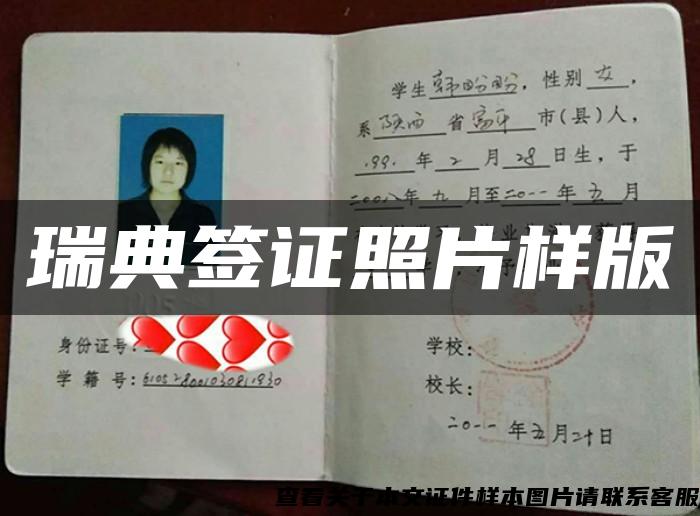 学生韩盼盼,性别女,
系陕西省富平市(县)人,
1991年2月28日生,于
二00八年九月至二0一一年五月
瑞典签证照片样版
身份证号:
学籍号:
学校:
校长:
二0一一年五月二十日
查看关于本文证件样本图片请联系客服